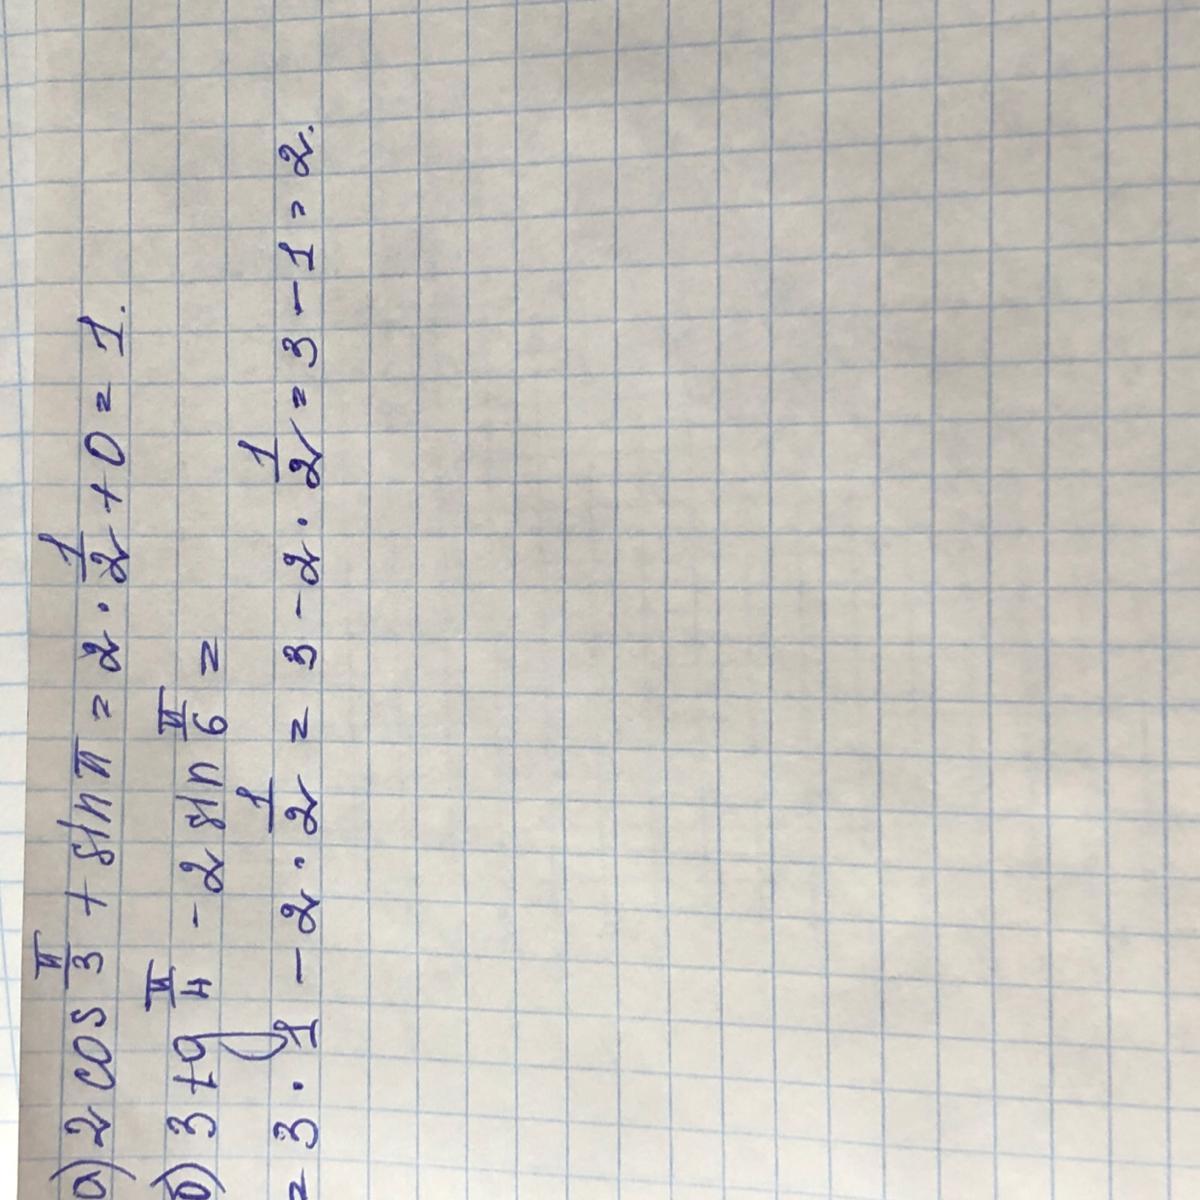 а) 2 cos π/3 + sin π = 2 · 1/2 + 0 = 1.
б) 3 tg π/4 - 2 sin π/6 =
= 3 · 1 - 2 · 1/2 = 3 - 2 · 1/2 = 3 - 1 = 2.